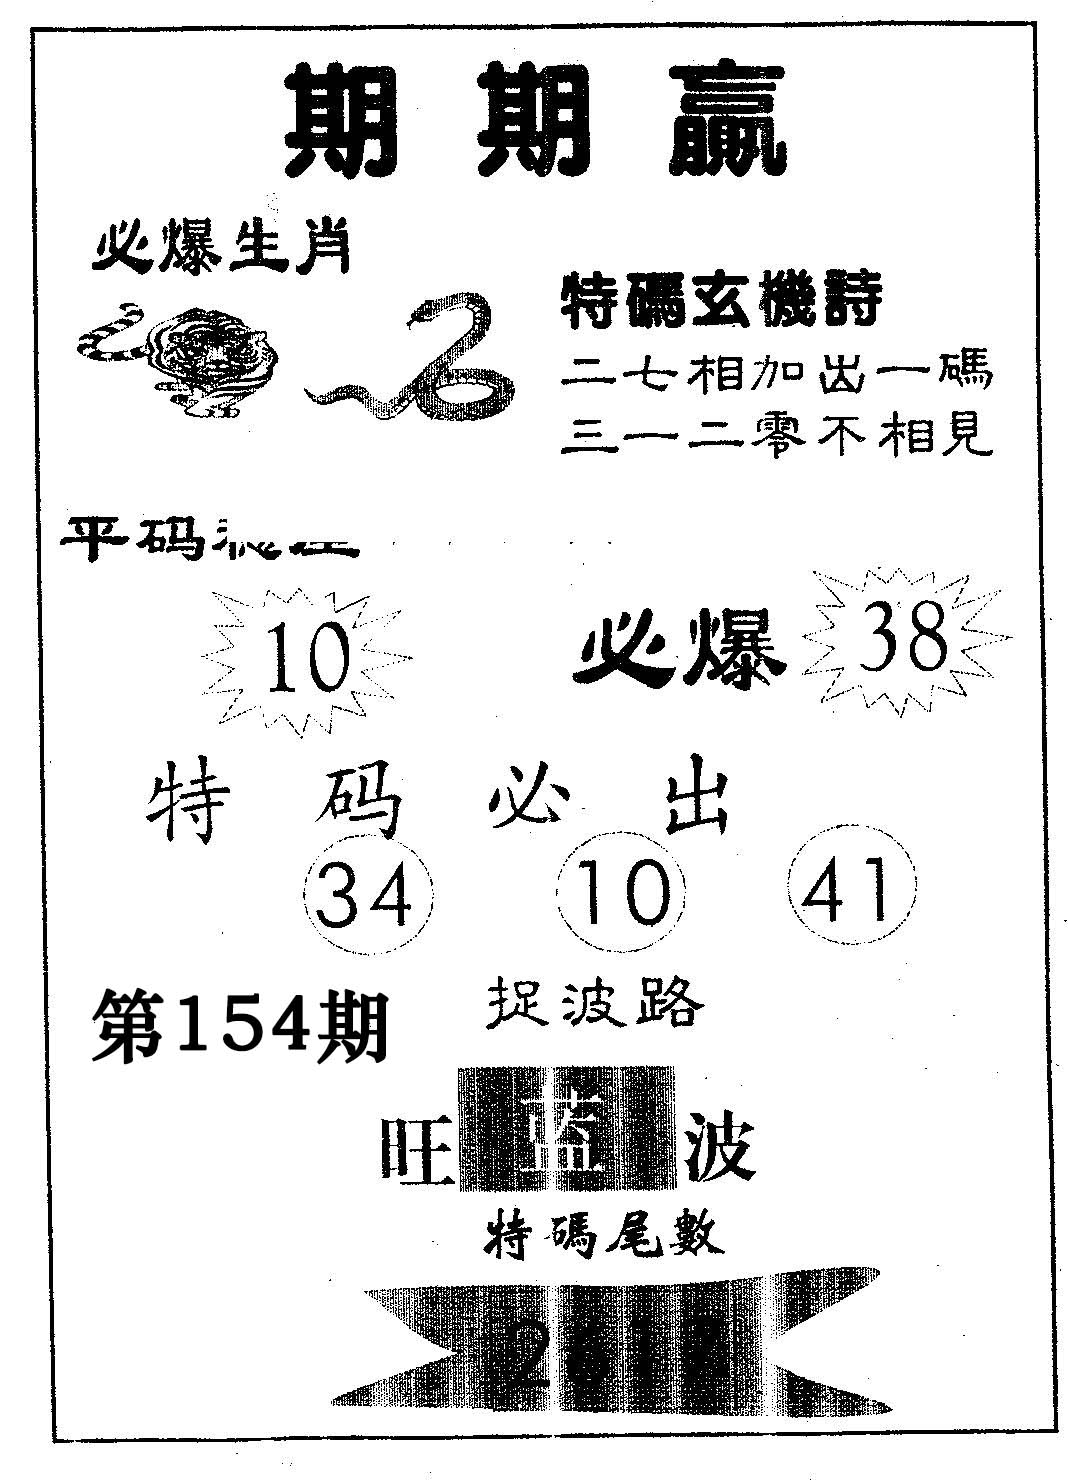 期期贏
必爆生肖
特碼玄機詩
二七相加出一碼
三一二零不相見
平码
10
必爆 38
特码必出
34 10 41
第154期
捉波路
旺蓝波
特碼尾數
2